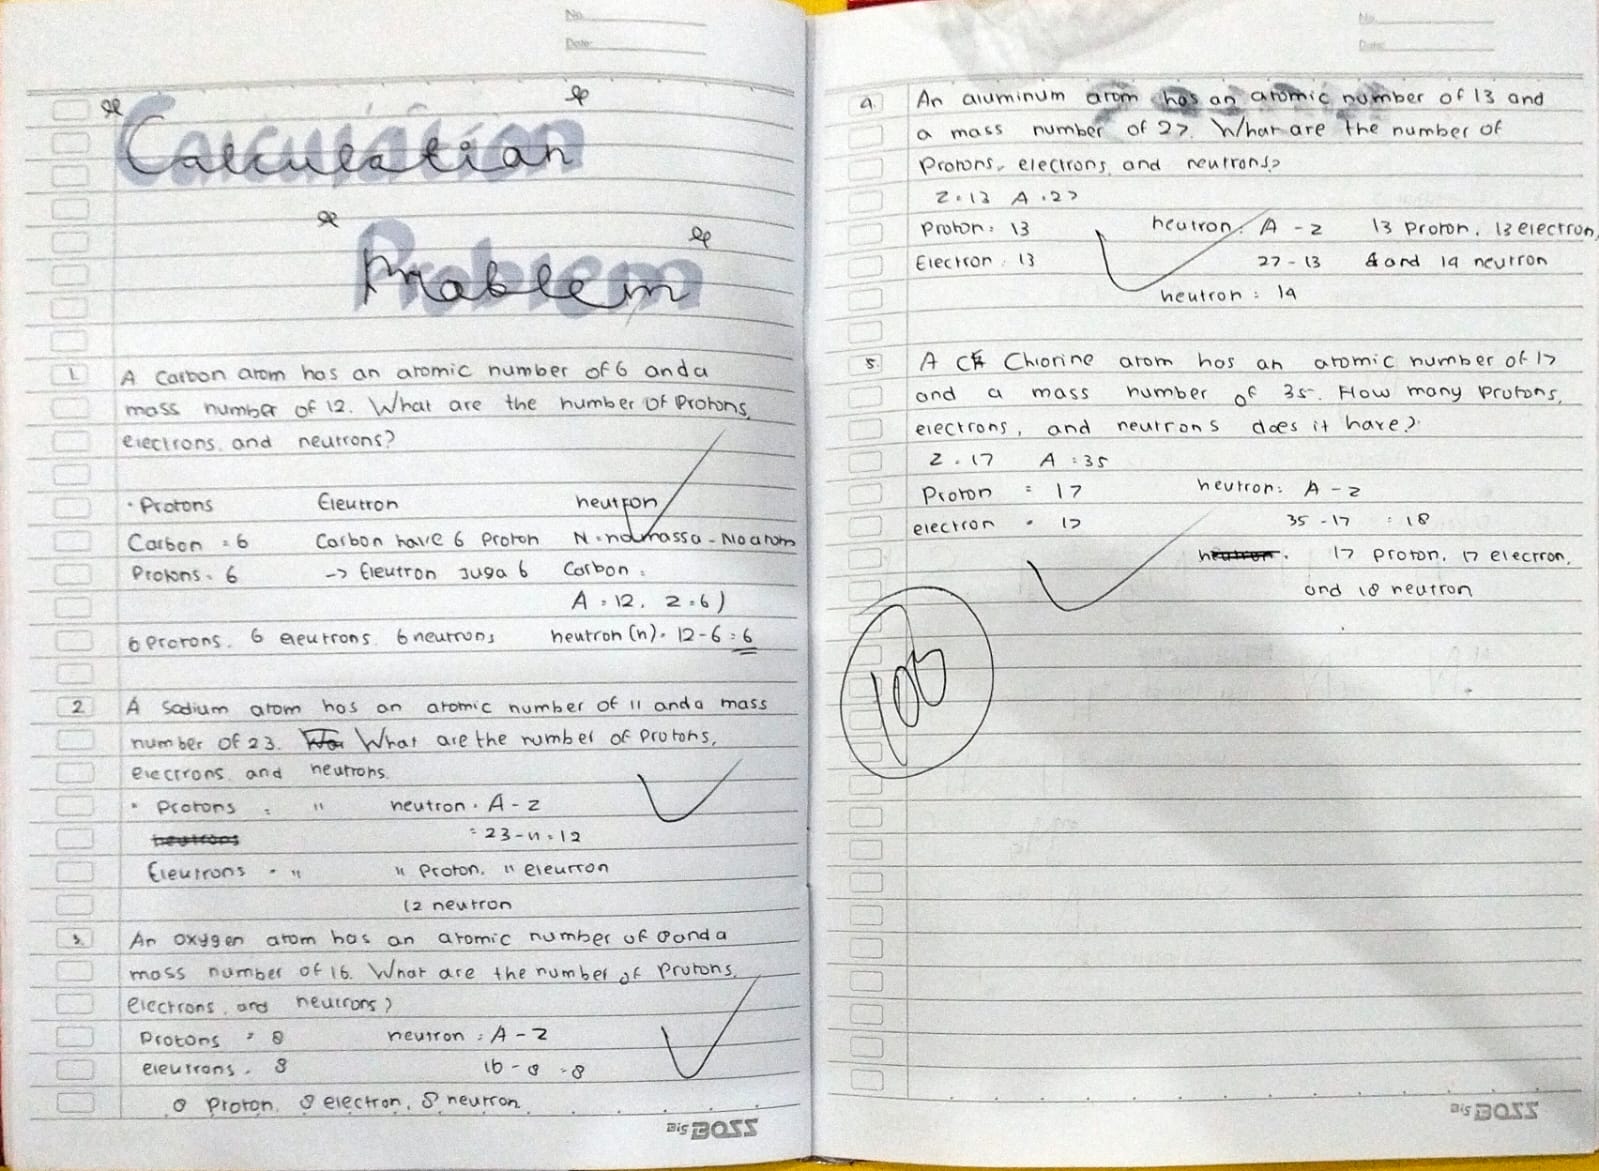 No.
Date:
Calculation
Problem
1. A Carbon atom has an atomic number of 6 and a
mass number of 12. What are the number of Protons,
electrons, and neutrons?
• Protons Eleutron neutron
Carbon = 6 Carbon have 6 Proton N = no massa - No atom
Protons = 6 -> Eleutron Juga 6 Carbon :
A = 12, Z = 6)
6 Protons, 6 eleutrons, 6 neutrons neutron (n) = 12 - 6 = 6
2 A Sodium atom has an atomic number of 11 and a mass
number of 23. What are the number of protons,
electrons, and neutrons.
• Protons = 11 neutron = A - Z
neutrons = 23 - 11 = 12
Eleutrons = 11 11 Proton, 11 eleutron
12 neutron
3. An oxygen atom has an atomic number of 8 and a
mass number of 16. What are the number of Protons,
electrons, and neutrons?
Protons = 8 neutron = A - Z
eleutrons = 8 16 - 8 = 8
8 Proton, 8 electron, 8 neutron
Big BOSS
No.
Date:
4. An aluminum atom has an atomic number of 13 and
a mass number of 27. What are the number of
Protons, electrons, and neutrons?
Z = 13 A = 27
Proton = 13 neutron = A - Z 13 Proton, 13 electron,
Electron = 13 27 - 13 and 14 neutron
neutron = 14
5. A Chlorine atom has an atomic number of 17
and a mass number of 35. How many protons,
electrons, and neutrons does it have?
Z = 17 A = 35
Proton = 17 neutron = A - Z
electron = 17 35 - 17 = 18
neutron = 17 proton, 17 electron,
and 18 neutron
100
Big BOSS